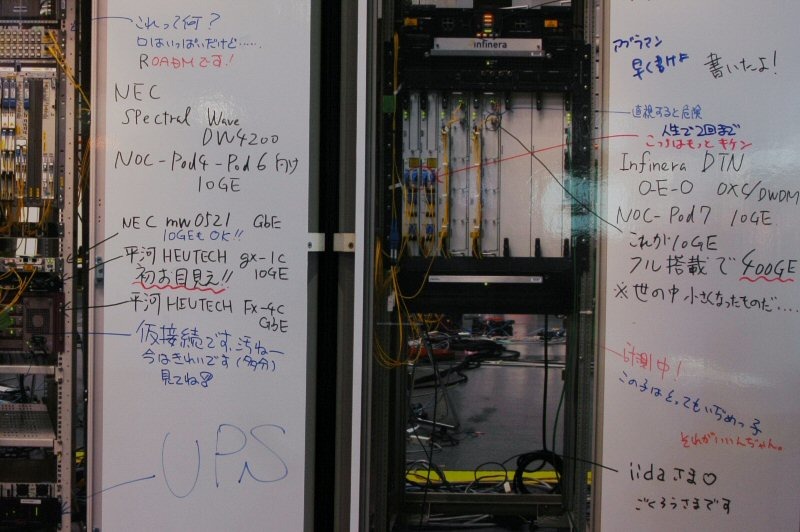 これって何?
口はいっぱいだけど......
ROADMです!
NEC
Spectral Wave
DW4200
NOC-Pod4-Pod6向け
10GE
NEC mw0521 GbE
10GEもOK!!
平河HEUTECH gx-1c
10GE
初お目見え!!
平河HEUTECH Fx-4c
GbE
仮接続です、汚ねー
今はきれいです(多分)
見てね
UPS
infinera
アブラマン
早く書けよ
書いたよ!
直視すると危険
人生で2回まで
こっちはもっとキケン
Infinera DTN
O-E-O OXC/DWDM
NOC-Pod7 10GE
これが10GE
フル搭載で400GE
※世の中小さくなったものだ....
計測中!
この子はとってもいぢめっ子
それがいいんぢゃん。
iidaさま♡
ごくろうさまです